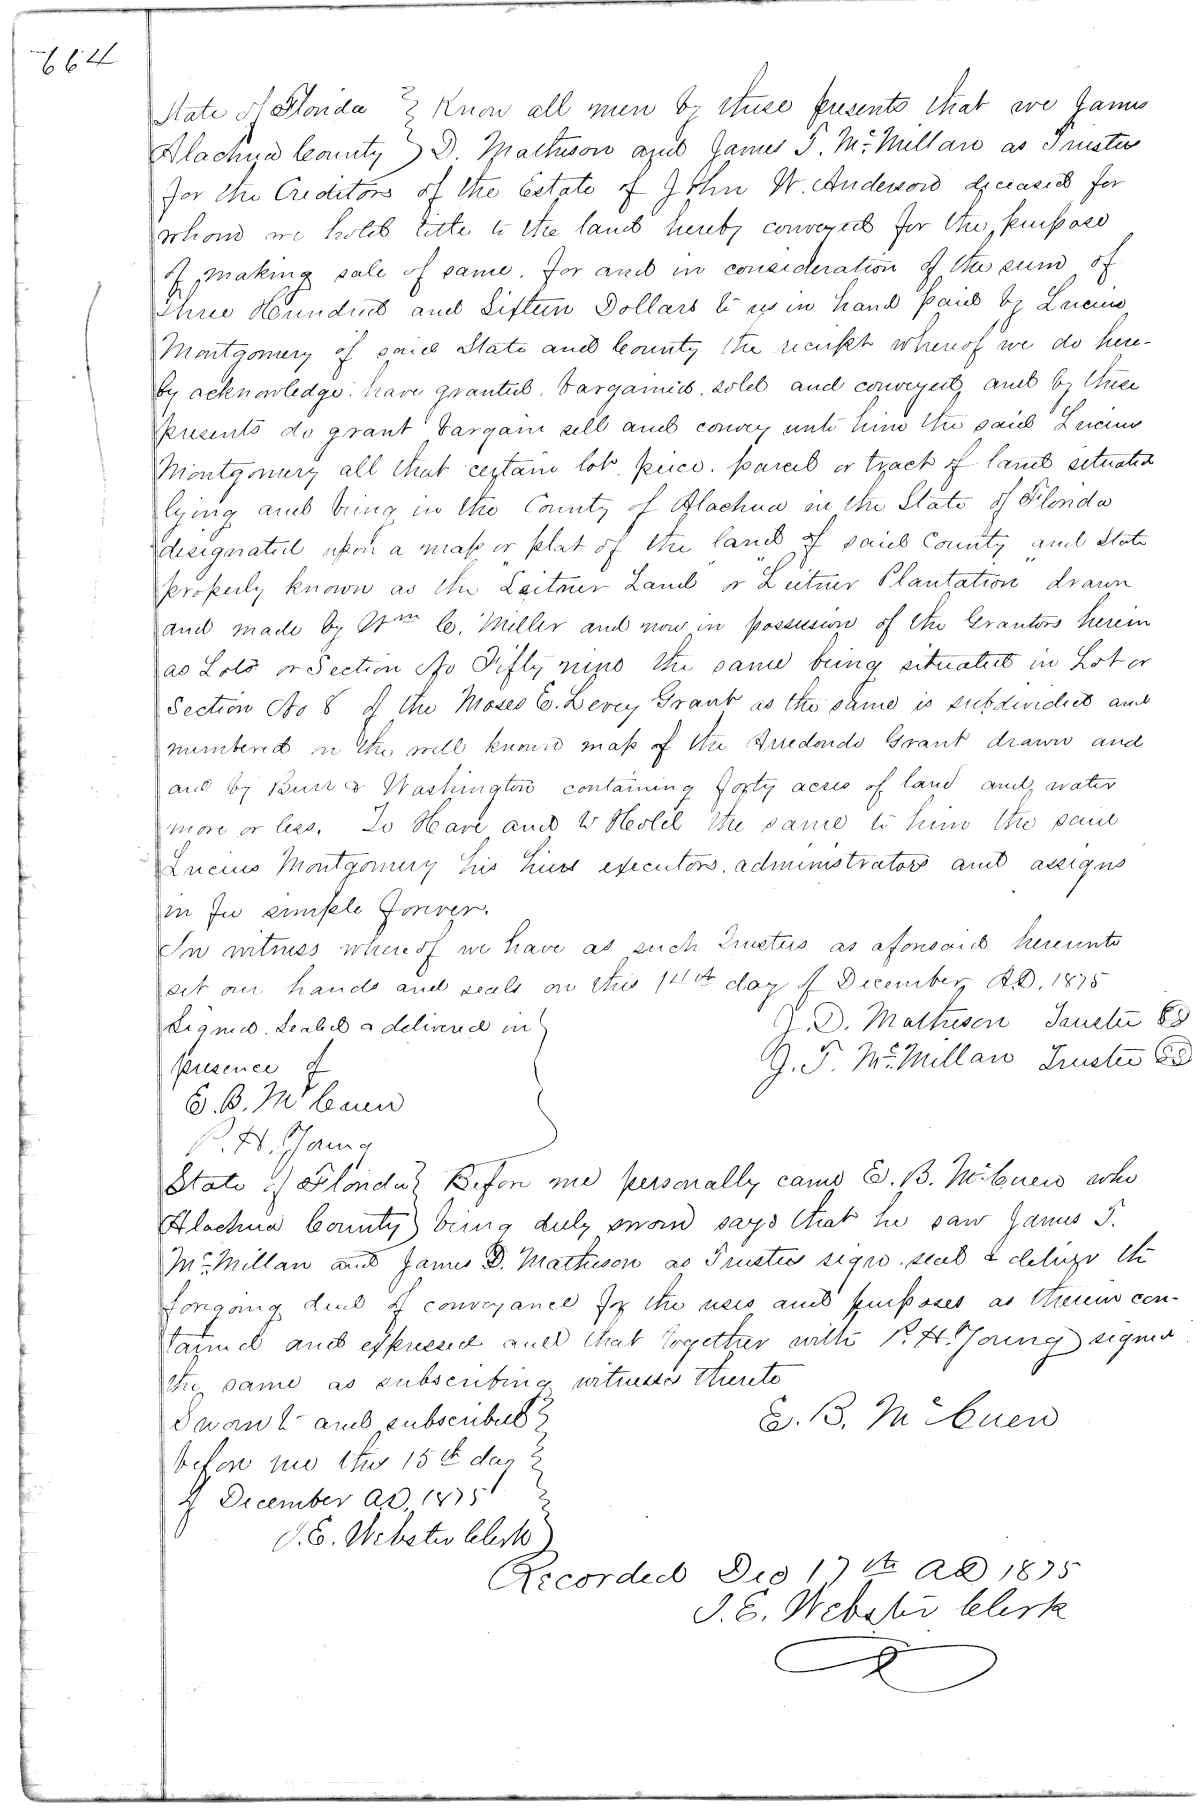 664
State of Florida } Know all men by these presents that we James
Alachua County } D. Matheson and James T. McMillan as Trustees
for the Creditors of the Estate of John W. Anderson deceased for
whom we hold title to the land hereby conveyed for the purpose
of making sale of same. for and in consideration of the sum of
Three Hundred and Fifteen Dollars to us in hand paid by Lucius
Montgomery of said State and County the receipt whereof we do here-
by acknowledge. have granted, bargained, sold and conveyed and by these
presents do grant bargain sell and convey unto him the said Lucius
Montgomery all that certain lot. piece. parcel or tract of land situated
lying and being in the County of Alachua in the State of Florida
designated upon a map or plat of the land of said County and State
properly known as the "Leitner Land" or "Leitner Plantation" drawn
and made by Wm C. Miller and now in possession of the Grantors herein
as Lots or Section No Fifty nine the same being situated in Lot or
Section No 8 of the Moses E. Levey Grant as the same is subdivided and
numbered on the well known map of the Arredondo Grant drawn and
and by Burr & Washington containing forty acres of land and water
more or less. To Have and to Hold the same to him the said
Lucius Montgomery his heirs executors, administrators and assigns
in fee simple forever.
In witness whereof we have as such Trustees as aforesaid hereunto
set our hands and seals on this 14th day of December A.D. 1875
Signed. Sealed & delivered in } J. D. Matheson Trustee
presence of J. T. McMillan Trustee
E. B. McCuen
P. H. Young
State of Florida } Before me personally came E. B. McCuen who
Alachua County } being duly sworn says that he saw James T.
McMillan and James D. Matheson as Trustees sign. seal & deliver the
foregoing deed of conveyance for the uses and purposes as therein con-
tained and expressed and that together with P. H. Young signed
the same as subscribing witnesses thereto
Sworn to and subscribed } E. B. McCuen
before me this 15th day
of December A.D. 1875
J. E. Webster Clerk
Recorded Dec 17th AD 1875
J. E. Webster Clerk